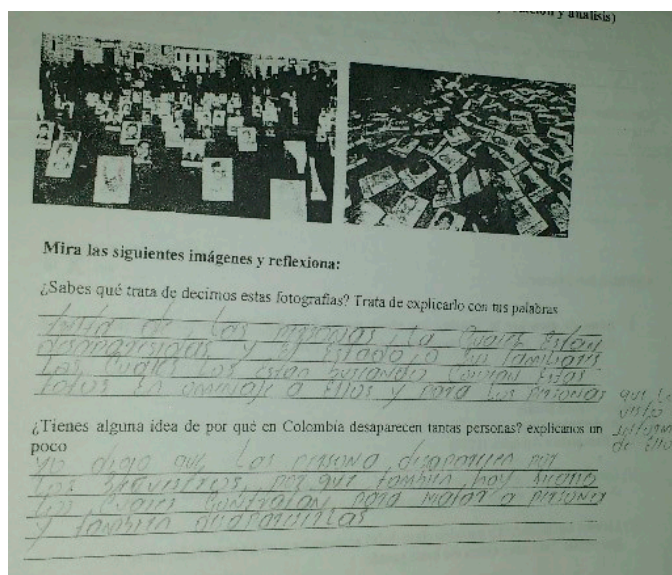 y analisis)
Mira las siguientes imágenes y reflexiona:
¿Sabes qué trata de decirnos estas fotografías? Trata de explicarlo con tus palabras
trata de las personas la cuales estan
desaparesidas y el estado o sus familiares
los cuales los estan buscando
fotos en omenaje a ellos y para las personas que
¿Tienes alguna idea de por qué en Colombia desaparecen tantas personas? explicanos un
poco
yo digo que las persona desaparecen por
los secuestros, por que tambien hay
los cuales contratan para matar a persona
y tambien